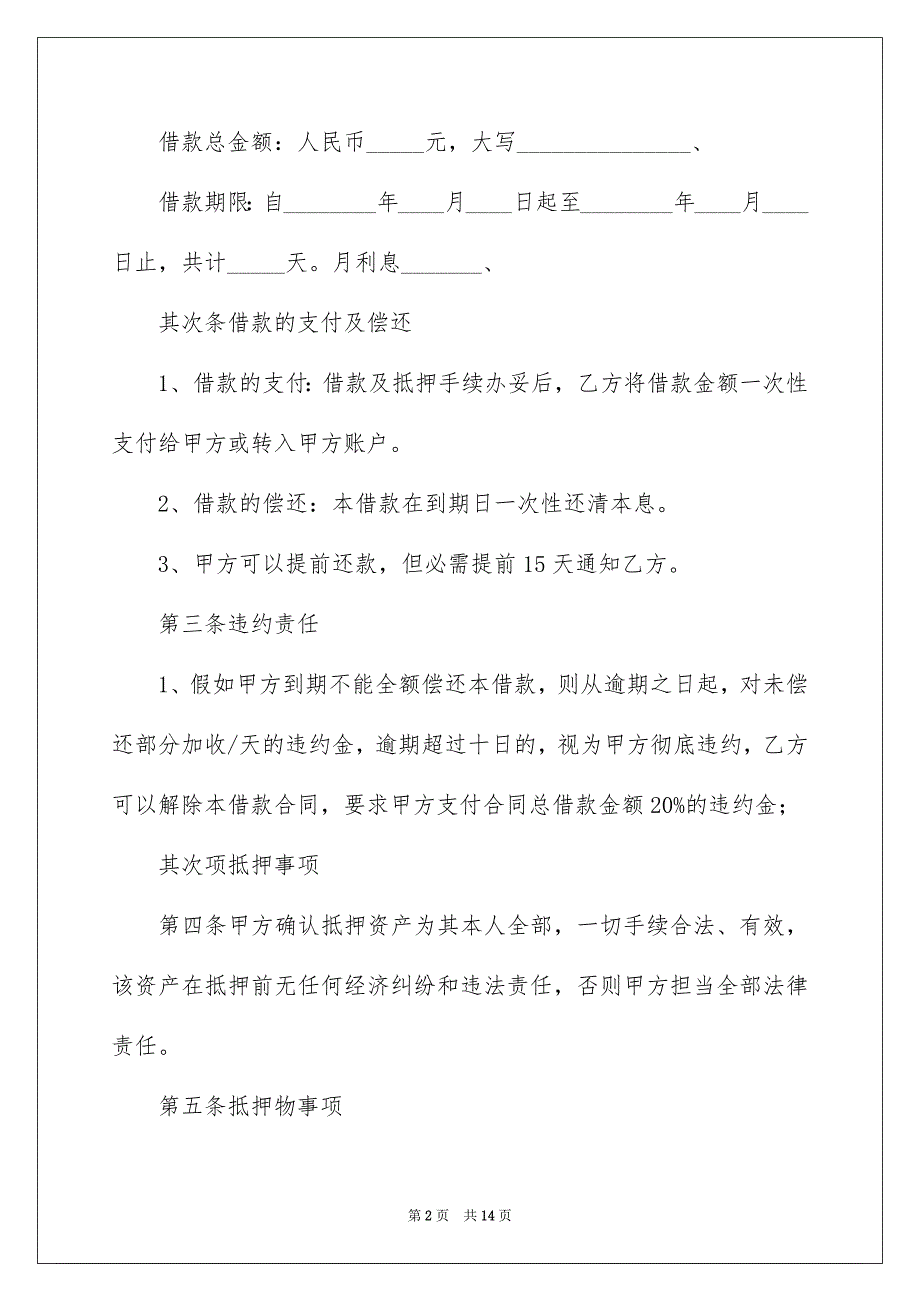 借款总金额：人民币_____元，大写_______________、
借款期限：自________年____月____日起至________年____月____
日止，共计_____天。月利息_______、
其次条借款的支付及偿还
1、借款的支付：借款及抵押手续办妥后，乙方将借款金额一次性
支付给甲方或转入甲方账户。
2、借款的偿还：本借款在到期日一次性还清本息。
3、甲方可以提前还款，但必需提前 15 天通知乙方。
第三条违约责任
1、假如甲方到期不能全额偿还本借款，则从逾期之日起，对未偿
还部分加收/天的违约金，逾期超过十日的，视为甲方彻底违约，乙方
可以解除本借款合同，要求甲方支付合同总借款金额 20%的违约金；
其次项抵押事项
第四条甲方确认抵押资产为其本人全部，一切手续合法、有效，
该资产在抵押前无任何经济纠纷和违法责任，否则甲方担当全部法律
责任。
第五条抵押物事项
第 2 页 共 14 页